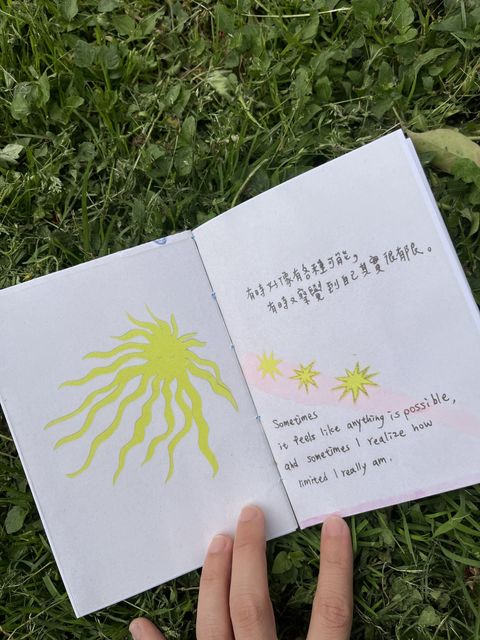 有時好像有各種可能，
有時又察覺到自己其實很有限。
Sometimes
it feels like anything is possible,
and sometimes I realize how
limited I really am.